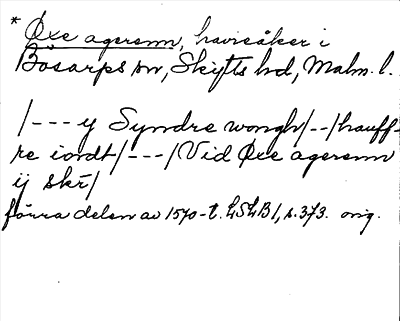 * Øxe agerenn, havreåker i
Bösarps sn, Skytts hd, Malm. l.
/--- y Syndre wongh/--/hauff-
re iordt/---/Vid Øxe agerenn
ij skr/
förra delen av 1570-t. LSLB1, s. 373. orig.